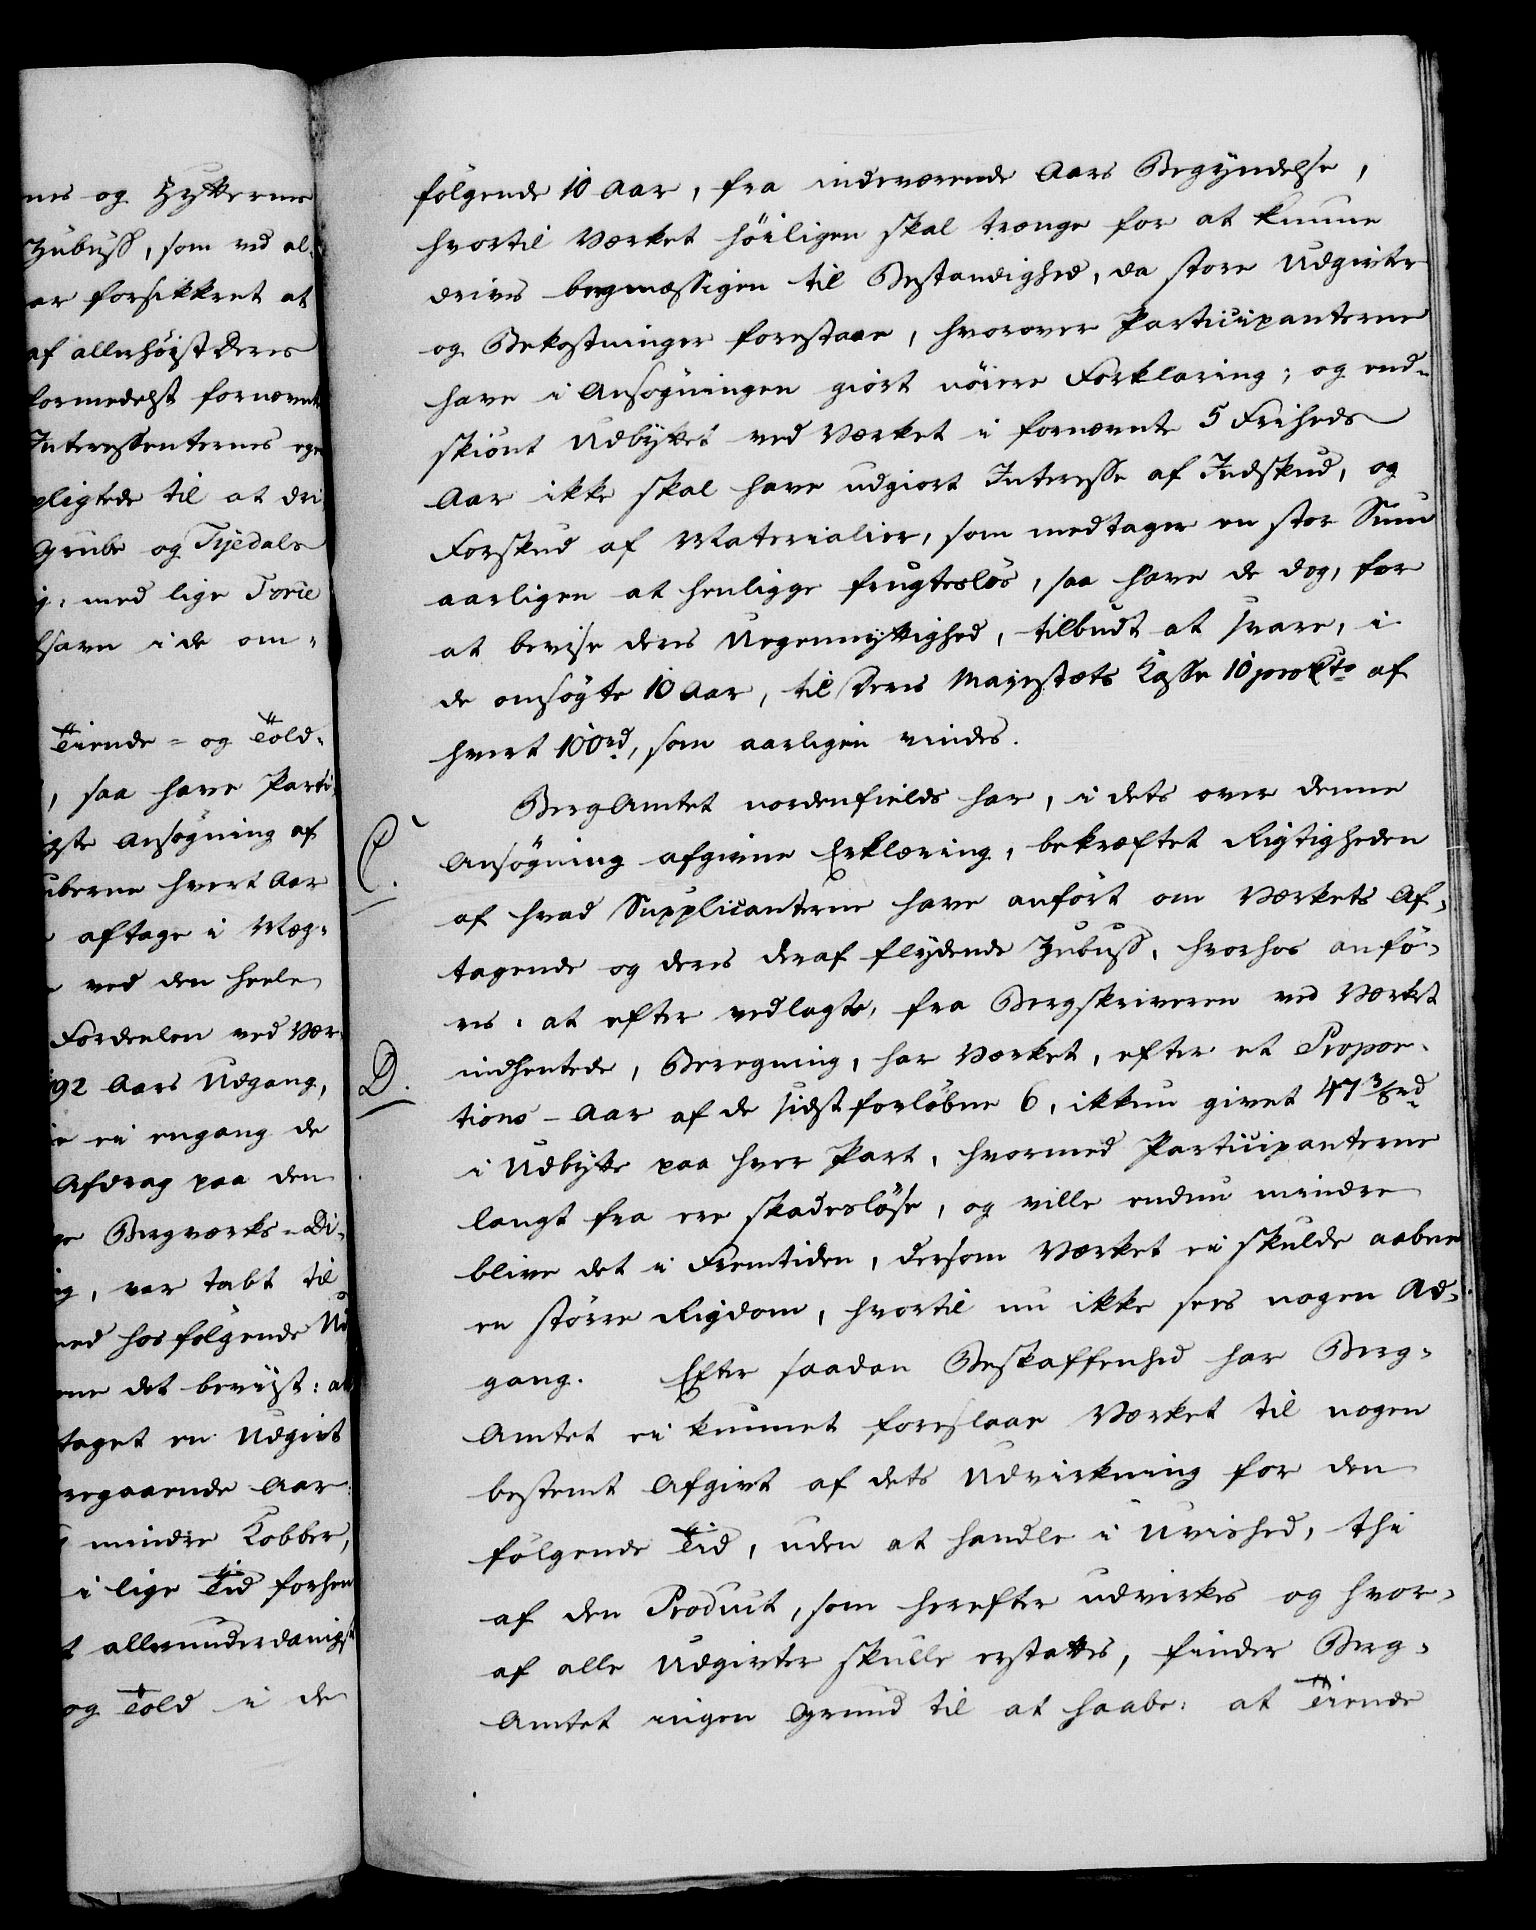 nes og Hytterne
Zubuss, som ved al-
ar forsikkret at
af allerhöist Deres
formedelst fornævnte
Interessenternes ege
pligtede til at dri
Grube og Tydals
med lige Torie
i de om-
Tiende- og Told-
, saa have Parti
igste Ansøgning af
uberne hvert Aar
aftage i Mæg-
ved den heele
Fordeelen ved Vær-
92 Aars Udgang,
ei engang de
Afdrag paa den
Bergværks-Di-
ig, var tabt til
med hosfølgende Ud
det beviist: at
taget en Udgivt
regaaende Aar
mindre Kobber,
i lige Tid forhen
t allerunderdanigst
og Told i de
følgende 10 Aar, fra indeværende Aars Begÿndelse,
hvortil Værket höiligen skal trænge for at kunne
drives bergmæssigen til Bestandighed, da store Udgivter
og Bekostninger forestaae, hvorover Participanterne
have i Ansøgningen giört nöiere Forklaring; og end-
skiönt Udbÿttet ved Værket i fornævnte 5 Friheds
Aar ikke skal have udgiort Interesse af Indskud, og
Forskud af Materialier, som medtager en stor Sum
aarligen at henligge frugteslös, saa have de dog, for
at bevise deres Uegennÿttighed, tilbudt at svare, i
de ansögte 10 Aar, til Deres Majestæts Kasse 10 proCto af
hvert 100rd, som aarligen vindes.
BergAmtet nordenfields har, i dets over denne
C.
Ansögning afgivne Erklæring, bekræftet Rigtigheden
af hvad Supplicanterne have anfört om Værkets Af-
tagende og deres deraf flÿdende Zubuss, hvorhos anfö-
res: at efter vedlagte, fra Bergskriveren ved Værket
D.
indhentede, Beregning, har Værket, efter et Propor-
tions-Aar af de sidst forlöbne 6, ikkun givet 47 3/8rd
i Udbÿtte paa hver Part, hvormed Participanterne
langt fra ere skadeslöse, og ville endnu mindre
blive det i Fremtiden, dersom Værket ei skulde aabne
en större Rigdom, hvortil nu ikke sees nogen Ad-
gang. Efter saadan Beskaffenhed har Berg-
Amtet ei kunnet foreslaae Værket til nogen
bestemt Afgivt af dets Udvirkning for den
følgende Tid, uden at handle i Uvished, thi
af den Product, som herefter udvirkes og hvor-
af alle Udgivter skulle erstattes, finder Berg-
Amtet ingen Grund til at haabe: at Tiende